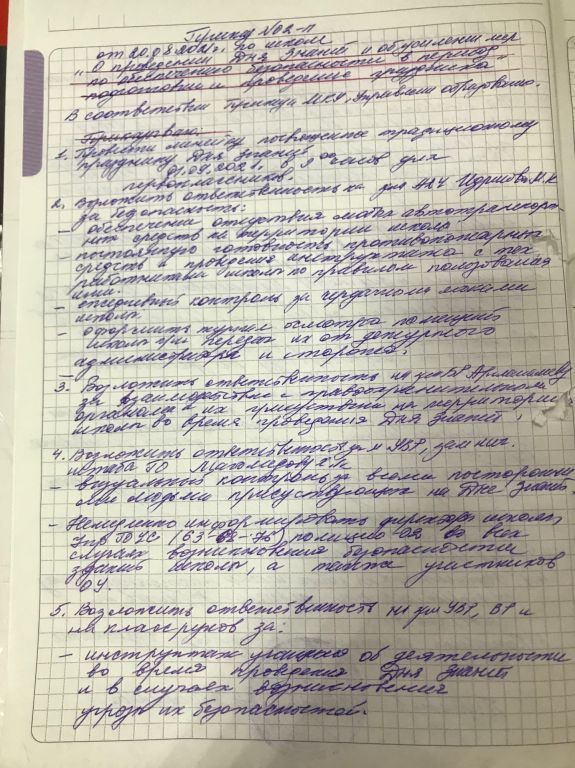 Приказ №02-П
от 20.08.2021г. по школе
"О проведении Дня Знаний и об усилении мер
по обеспечению безопасности в период
подготовки и проведение праздника"
В соответствии приказа МКУ, Управления образованию.
Приказываю:
1. Провести линейку посвященное традиционному
празднику Дня Знаний
01.09.2021г. в 9 00 часов для
первоклассников.
2. Возложить ответственность на зам АХЧ Идрисова М.К.
за безопасность:
- обеспечении отсутствия любых автотранспорт-
ных средств на территории школы
- постоянную готовность противопожарных
средств, проведения инструктажа с тех
работниками школы по правилам пользования
ими.
- ежедневный контроль за чердачными люками
школы
- оформить журнал осмотра помещений
школы при передаче их от дежурного
администратора и сторожей.
3. Возложить ответственность на зам ВР
за взаимодействие с правоохранительными
органами и их присутствии на территории
школы во время проведения Дня Знаний.
4. Возложить ответственность зам УВР, зам нач.
штаба ГО Магомедову
- визуальный контроль за всеми посторонни
ми людьми присутствующих на Дне Знаний.
- Немедленно информировать директора школы,
Упр ГОЧС (63-62-76), полицию 02 во всех
случаях возникновения безопасности
зданию школы, а также участников
ОУ.
5. Возложить ответственность на зам УВР, ВР и
на класс руков за:
- инструктаж учащихся об деятельности
во время проведения Дня Знаний
и в случаях возникновений
угрозы их безопасностей.